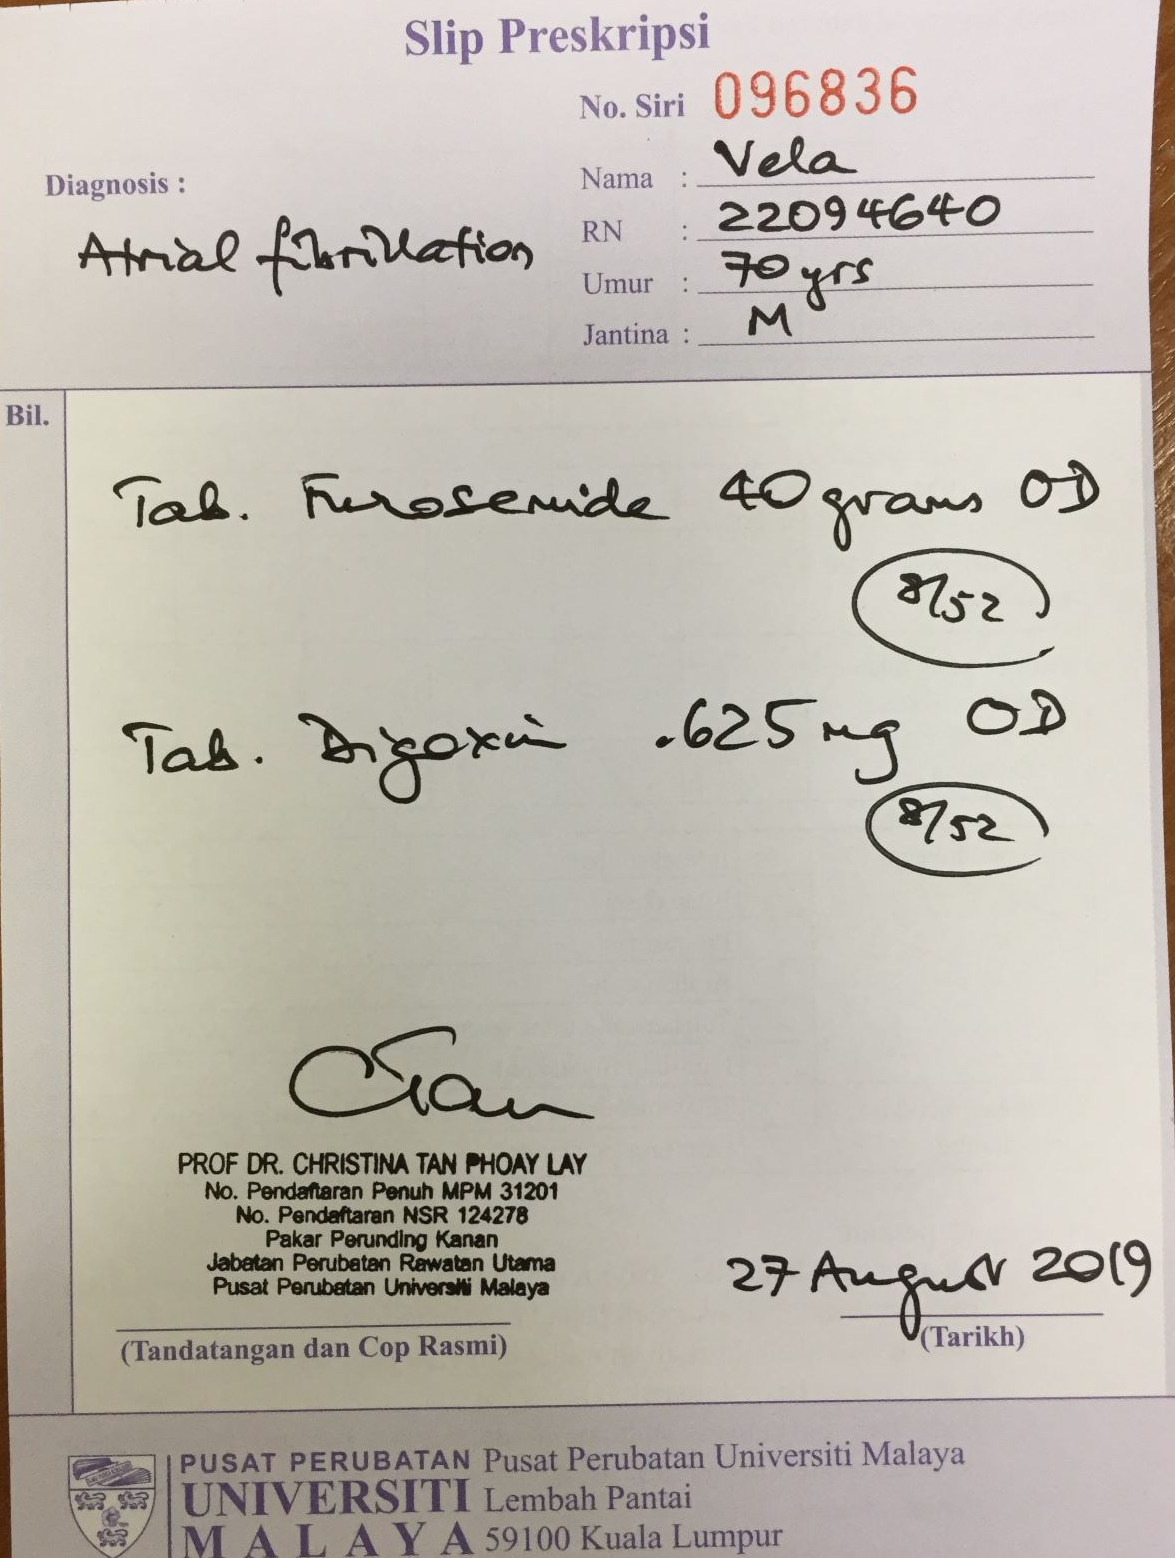 Slip Preskripsi
No. Siri 096836
Diagnosis :
Atrial fibrillation
Nama : Vela
RN : 22094640
Umur : 70 yrs
Jantina : M
Bil.
Tab. Furosemide 40 grams OD
8/52
Tab. Digoxin .625 mg OD
8/52
CTan
PROF DR. CHRISTINA TAN PHOAY LAY
No. Pendaftaran Penuh MPM 31201
No. Pendaftaran NSR 124278
Pakar Perunding Kanan
Jabatan Perubatan Rawatan Utama
Pusat Perubatan Universiti Malaya
(Tandatangan dan Cop Rasmi)
27 August 2019
(Tarikh)
PUSAT PERUBATAN
UNIVERSITI
MALAYA
Pusat Perubatan Universiti Malaya
Lembah Pantai
59100 Kuala Lumpur